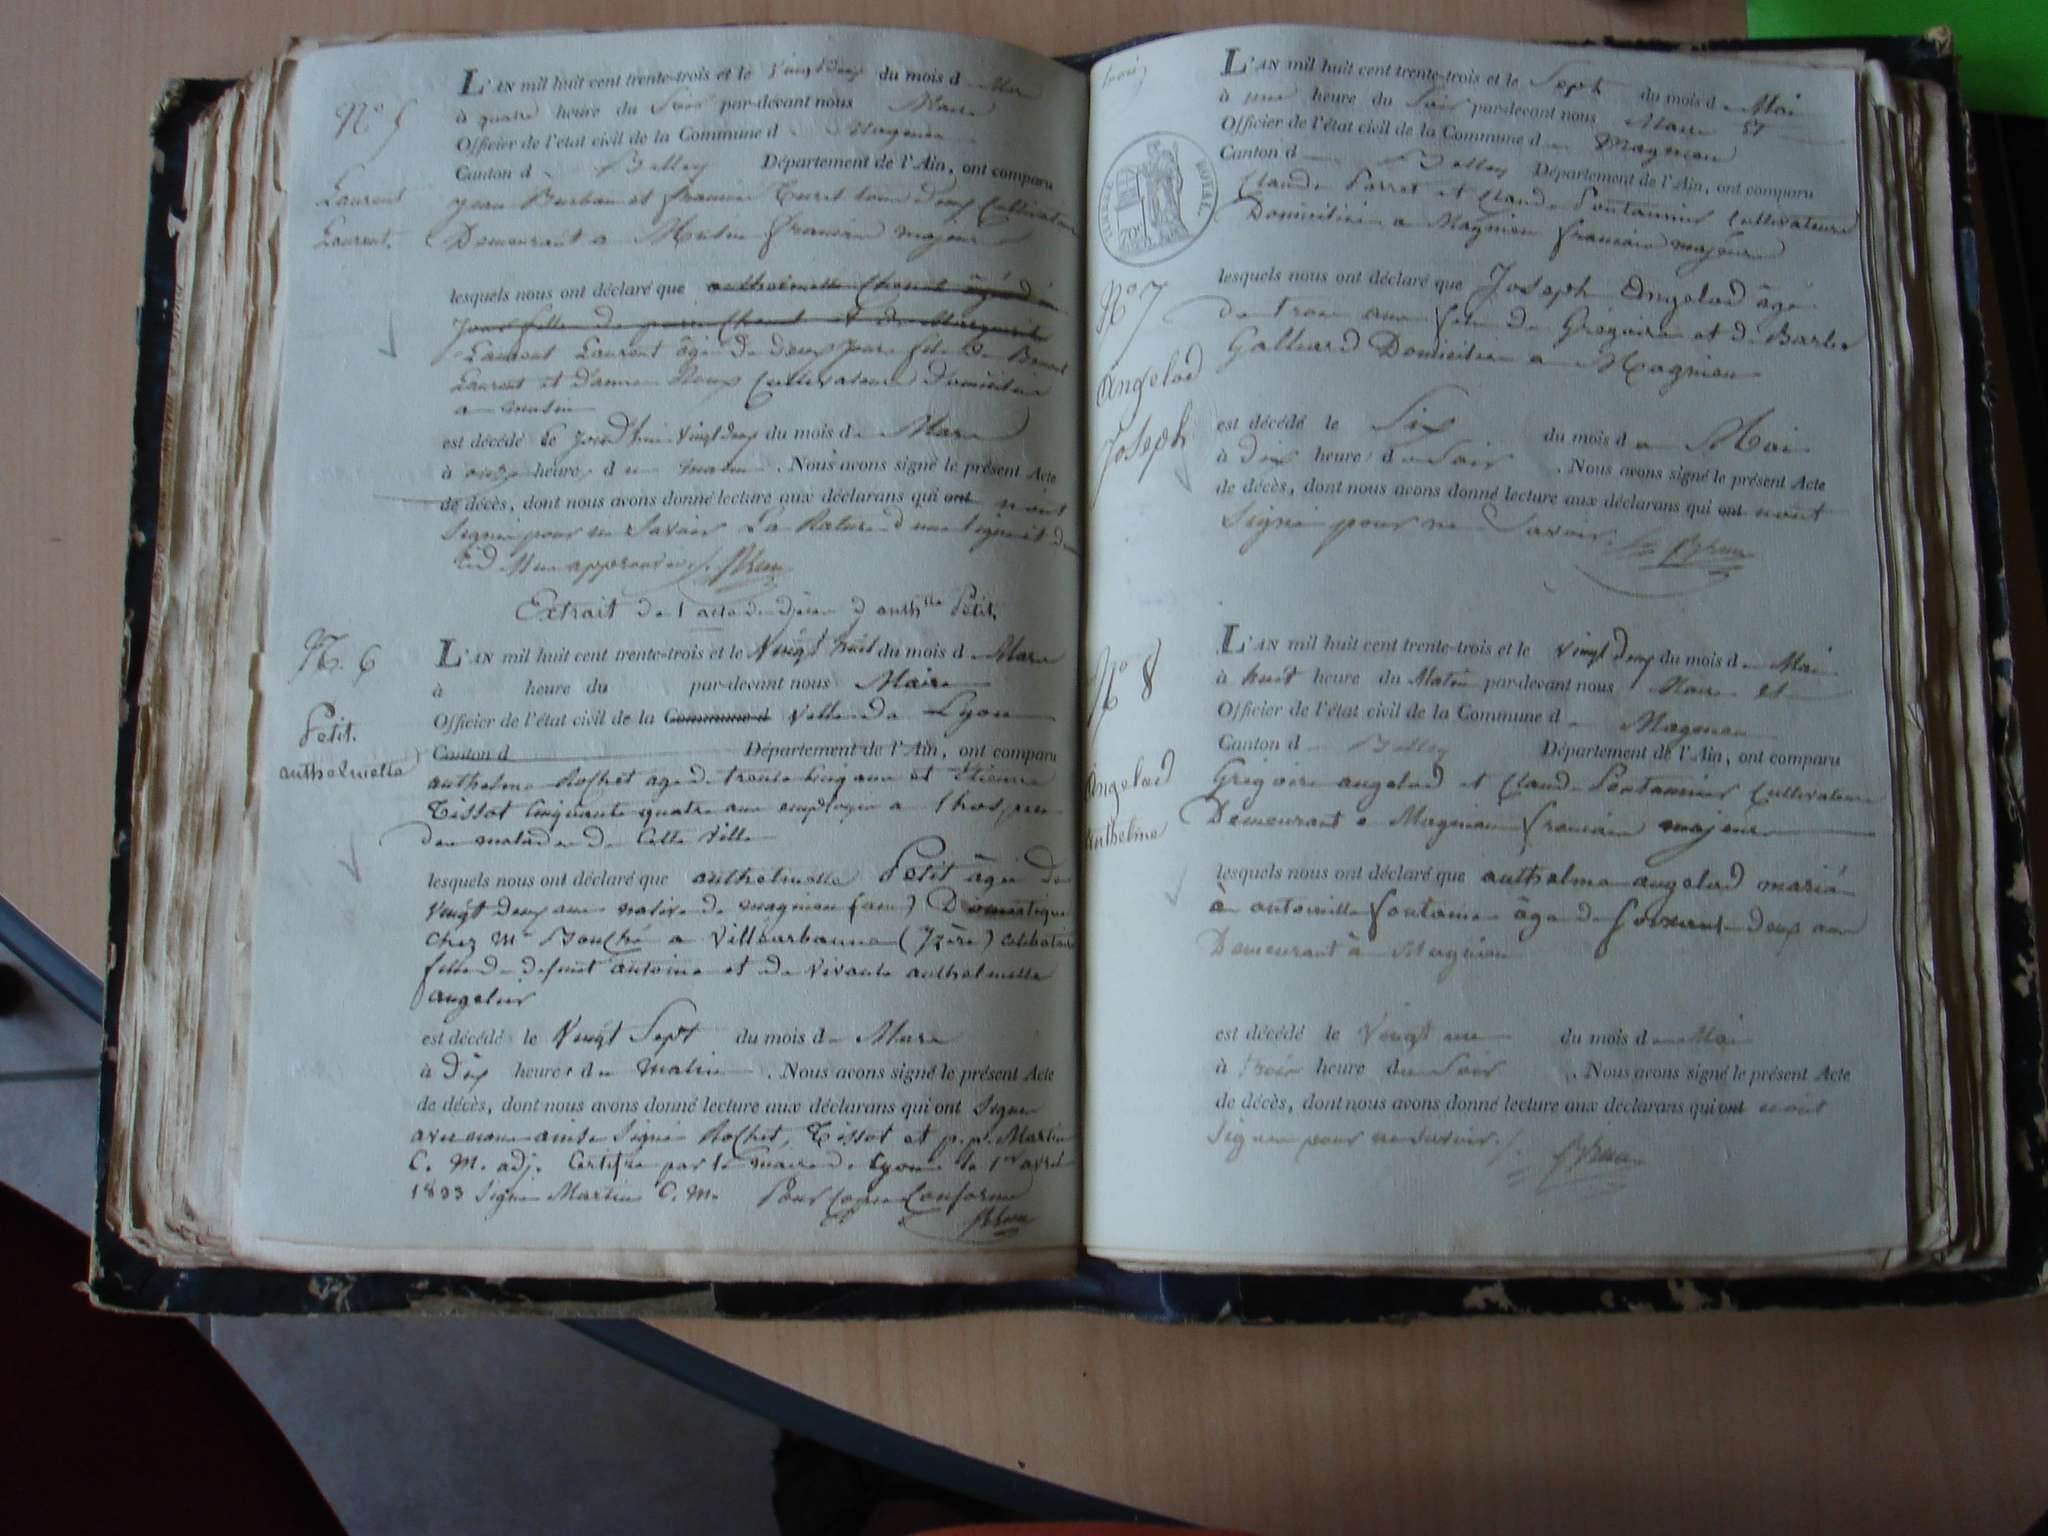 N° 5
Laurent
Laurent.
L'AN mil huit cent trente-trois et le vingt deux du mois de Mars
à quatre heure du Soir par-devant nous Maire
Officier de l'état civil de la Commune de Magnieu
Canton de Belley Département de l'Ain, ont comparu
jean et tous deux Cultivateurs
Demeurant a Musin francais majeurs
lesquels nous ont déclaré que anthelmette âgé de
jours fille de et de Marguerite
Laurent Laurent âgé de deux jours fils de Benoit
Laurent et d'anne Cultivateurs Domiciliés
a musin
est décédé le jourd'hui vingt deux du mois de Mars
à onze heures du matin. Nous avons signé le présent Acte
de décès, dont nous avons donné lecture aux déclarans qui ont n'ont
Signé pour ne Savoir La Rature d'une ligne et de
approuvée
Extrait de l'acte de décès d'anth.lle Petit.
N°. 6
Petit.
anthelmette
L'AN mil huit cent trente-trois et le Vingt huit du mois de Mars
à heure du par-devant nous Maire
Officier de l'état civil de la Commune d Ville de Lyon
Canton d Département de l'Ain, ont comparu
anthelme Rochet age de trente Cinq ans et Etienne
Tissot Cinquante quatre ans employés a l'hospice
des malades de Cette Ville
lesquels nous ont déclaré que anthelmette Petit âgée de
vingt deux ans native de magnieu (ain) Domestique
chez Mr Bouché a Villeurbanne (Izère) célibataire
fille de defunt antoine et de vivante anthelmette
angelier
est décédé le Vingt Sept du mois de Mars
à dix heures du matin. Nous avons signé le présent Acte
de décès, dont nous avons donné lecture aux déclarans qui ont Signé
avec nous ainsi Signé Rochet, Tissot et p. p. Martin
C. M. adj. Certifié par le maire de Lyon le 1er avril
1833 Signé Martin C. M. Pour Copie Conforme
trois
TIMBRE ROYAL.
70c
N° 7
Angelod
Joseph
L'AN mil huit cent trente-trois et le Sept du mois de Mai
à une heure du Soir par-devant nous Maire et
Officier de l'état civil de la Commune de Magnieu
Canton de Belley Département de l'Ain, ont comparu
Claude Parret et Claude Fontannier Cultivateurs
Domiciliés a Magnieu francais majeurs
lesquels nous ont déclaré que Joseph Angelod âgé
de trois ans fils de Grégoire et de Barbe
Galliard Domiciliés a Magnieu
est décédé le Six du mois de Mai
à dix heure du Soir. Nous avons signé le présent Acte
de décès, dont nous avons donné lecture aux déclarans qui ont n'ont
Signé pour ne Savoir.
N° 8
Angelod
Anthelme
L'AN mil huit cent trente-trois et le vingt deux du mois de Mai
à huit heure du Matin par-devant nous Maire et
Officier de l'état civil de la Commune de Magnieu
Canton de Belley Département de l'Ain, ont comparu
Grégoire angelod et Claude Fontannier Cultivateurs
Demeurant a Magnieu francais majeurs
lesquels nous ont déclaré que anthelme angelod marié
à antoinette fontaine âgé de soixante deux ans
Demeurant à Magnieu
est décédé le Vingt un du mois de Mai
à trois heure du Soir. Nous avons signé le présent Acte
de décès, dont nous avons donné lecture aux déclarans qui ont n'ont
Signé pour ne Savoir.